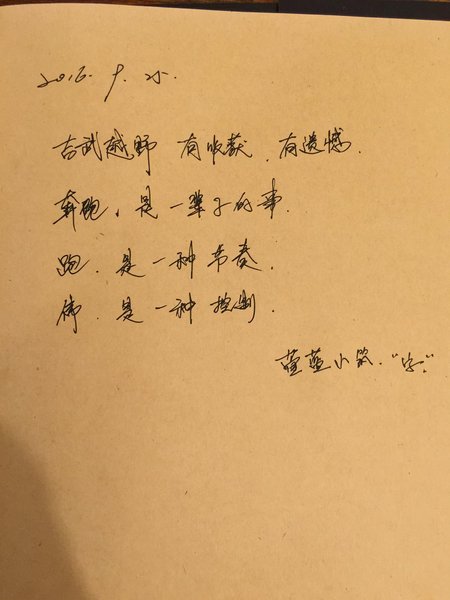 2016. 9. 25.
古武越野 有收获.有遗憾.
奔跑、是一辈子的事.
跑.是一种节奏.
停.是一种控制.
蓝小 "字."